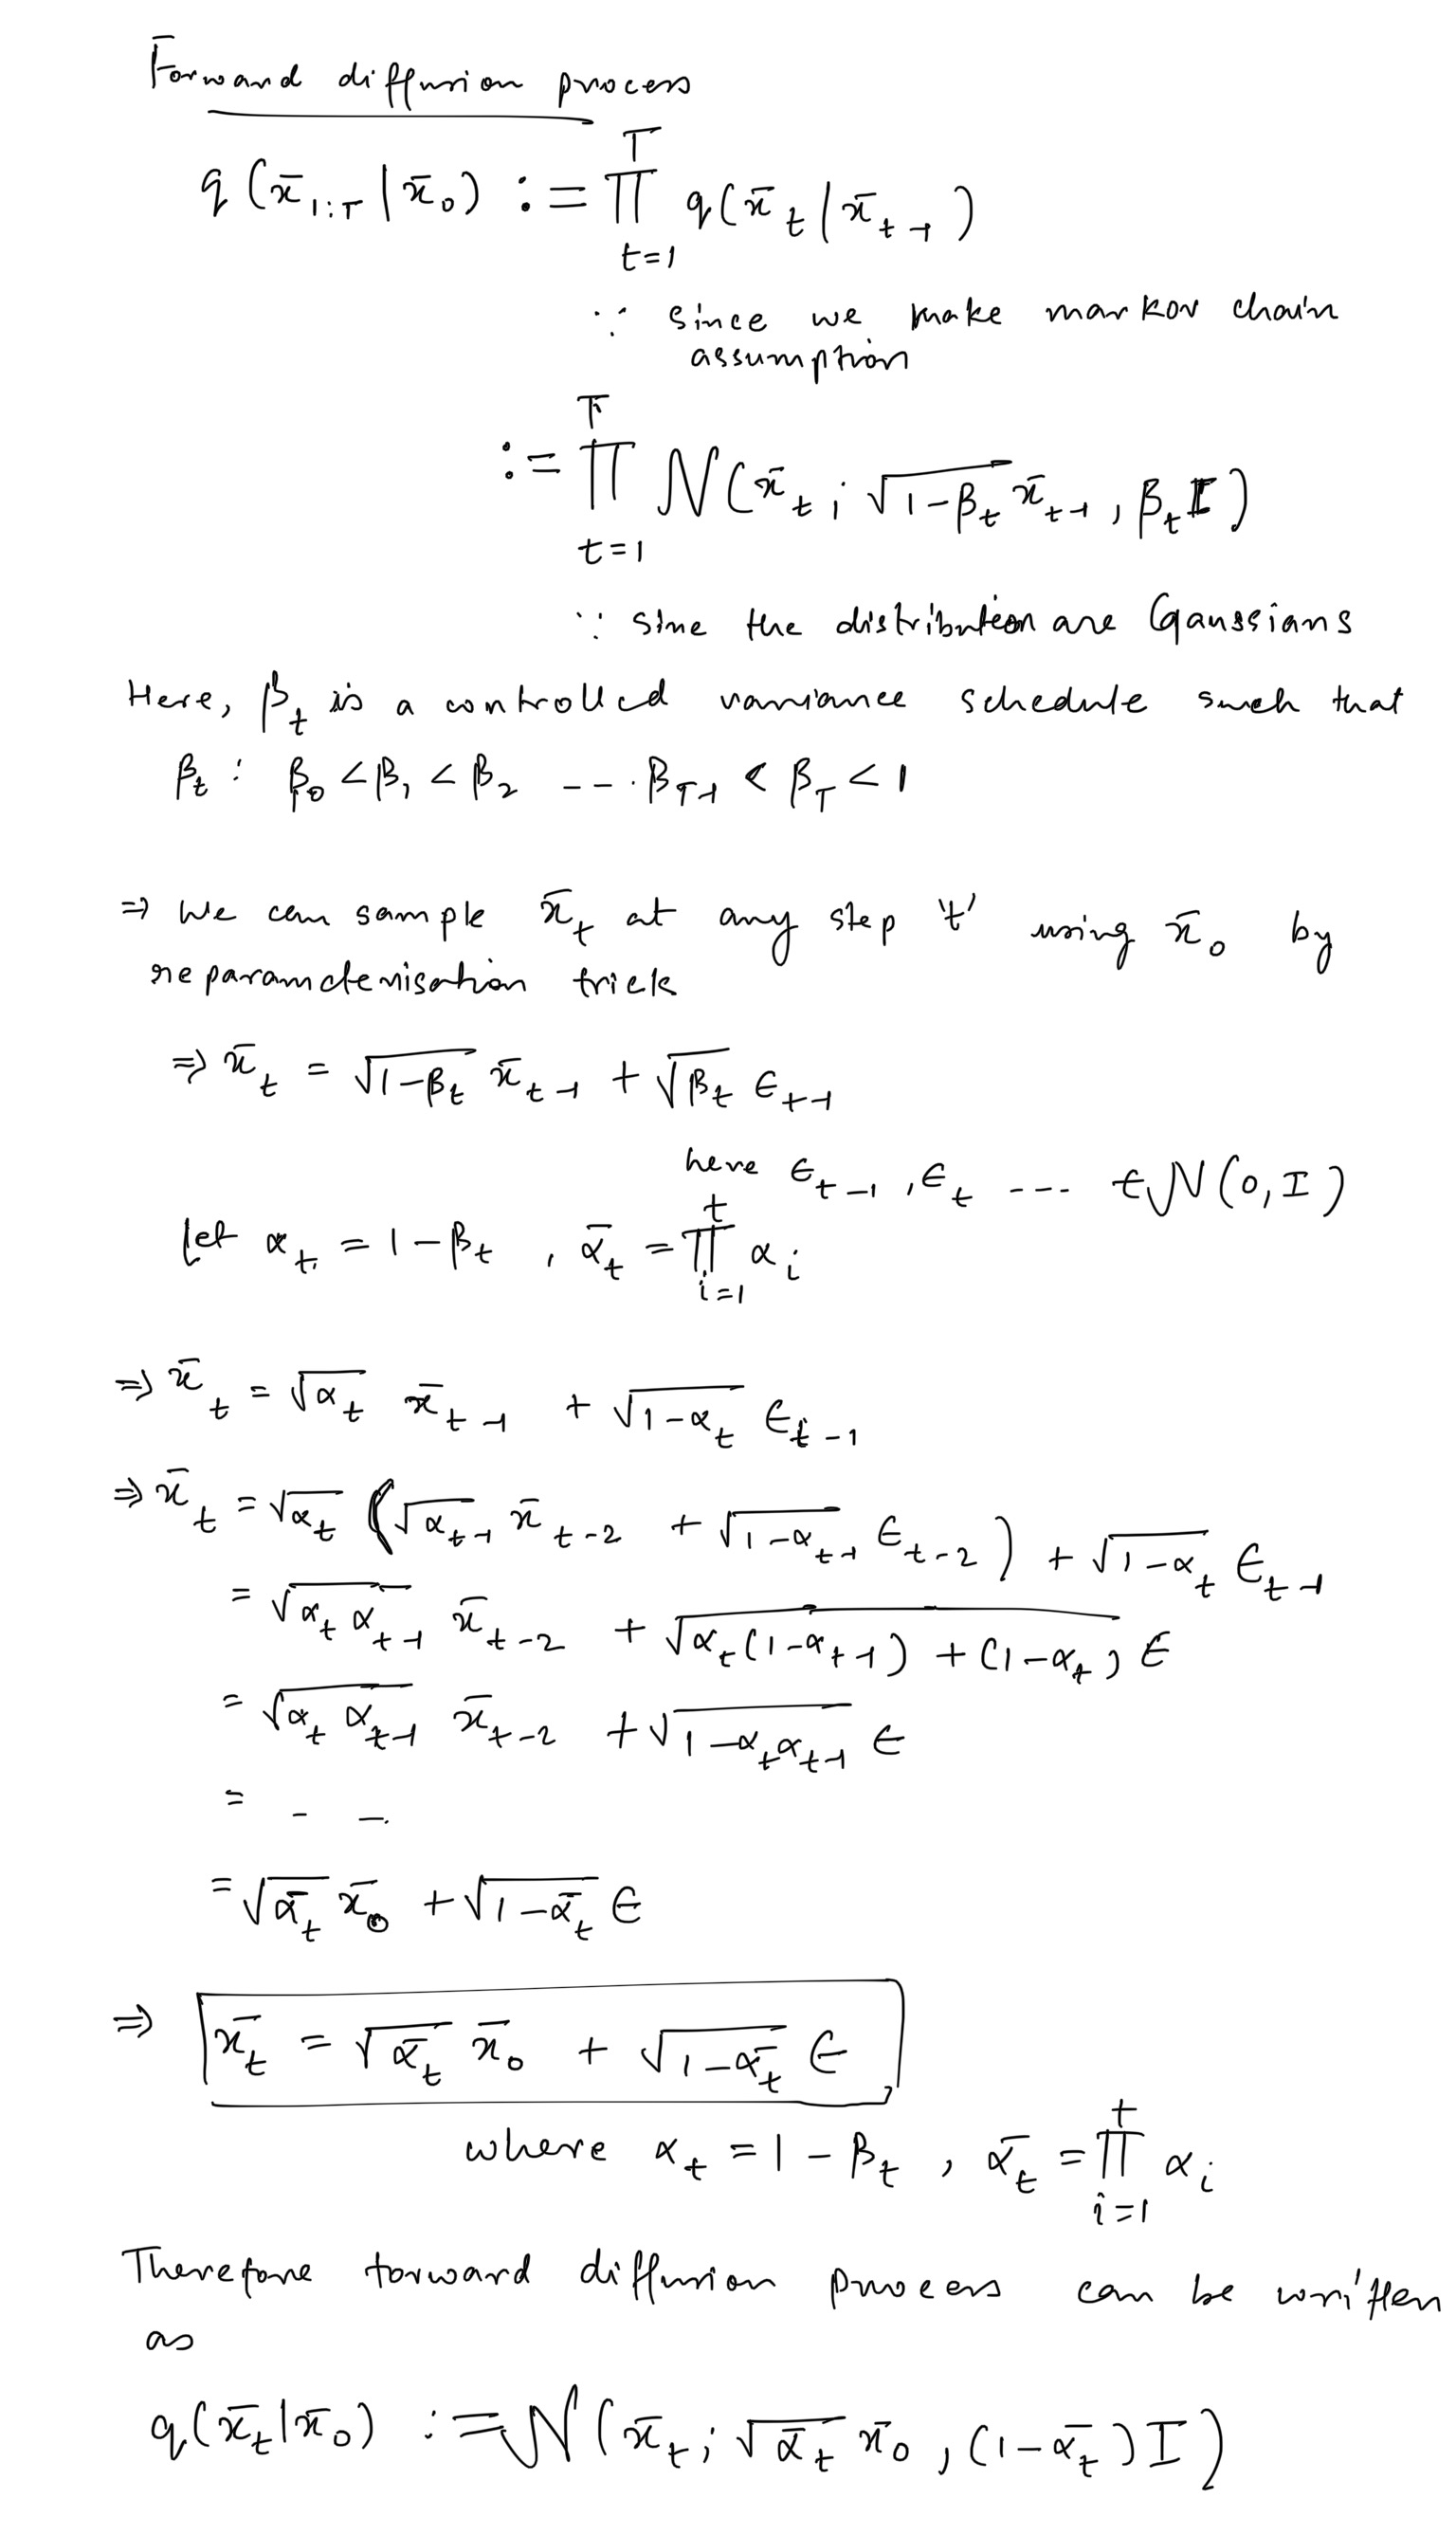 Forward diffusion process
q(x̄₁:T | x̄₀) := ∏_{t=1}^{T} q(x̄_t | x̄_{t-1})
∵ since we make markov chain
assumption
:= ∏_{t=1}^{T} N(x̄_t ; √(1-β_t) x̄_{t-1}, β_t I)
∵ sine the distribution are Gaussians
Here, β_t is a controlled variance schedule such that
β_t : β₀ < β₁ < β₂ --- . β_{T-1} < β_T < 1
⇒ We can sample x̄_t at any step 't' using x̄₀ by
reparameterisation trick
⇒ x̄_t = √(1-β_t) x̄_{t-1} + √β_t ε_{t-1}
here ε_{t-1}, ε_t --- ∈ N(0, I)
let α_t = 1-β_t , ᾱ_t = ∏_{i=1}^{t} α_i
⇒ x̄_t = √α_t x̄_{t-1} + √(1-α_t) ε_{t-1}
⇒ x̄_t = √α_t (√α_{t-1} x̄_{t-2} + √(1-α_{t-1}) ε_{t-2}) + √(1-α_t) ε_{t-1}
= √(α_t α_{t-1}) x̄_{t-2} + √(α_t(1-α_{t-1}) + (1-α_t)) ε
= √(α_t α_{t-1}) x̄_{t-2} + √(1-α_t α_{t-1}) ε
= - -.
= √ᾱ_t x̄₀ + √(1-ᾱ_t) ε
⇒ x̄_t = √ᾱ_t x̄₀ + √(1-ᾱ_t) ε
where α_t = 1 - β_t , ᾱ_t = ∏_{i=1}^{t} α_i
Therefore forward diffusion process can be written
as
q(x̄_t | x̄₀) := N(x̄_t ; √ᾱ_t x̄₀ , (1-ᾱ_t) I)